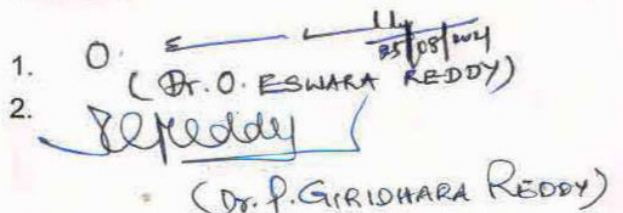 1. O. E
25/08/2021
(Dr. O. ESWARA REDDY)
2.
(Dr. P. GIRIDHARA REDDY)